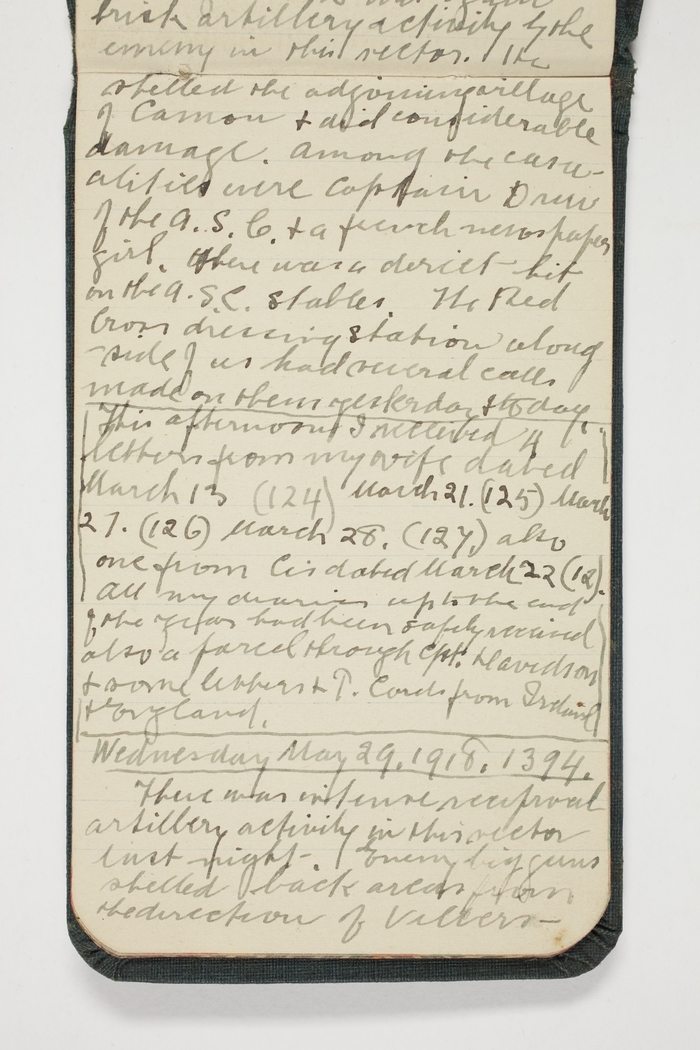 brisk artillery activity by the
enemy in this sector. He
shelled the adjoining village
of Camon & did considerable
damage. Among the casu-
alities were Captain Drew
of the A.S.C. & a french newspaper
girl. There was a dericet hit
on the A.S.C. stables. The Red
Cross dressing station along
-side of us had several calls
made on them yesterday & today.
This afternoon I received 4
letters from my wife dated
March 13 (124) March 21. (125) March
27. (126) March 28. (127) also
one from Cis dated March 22 (12).
All my diaries up to the end
of the year had been safely received
also a parcel through Cpt. Davidson
& some letters & P. Cards from Ireland
& England.
Wednesday May 29. 1918. 1394.
There was intense reciprocal
artillery activity in this sector
last night. Enemy big guns
shelled back areas from
the direction of Villers-